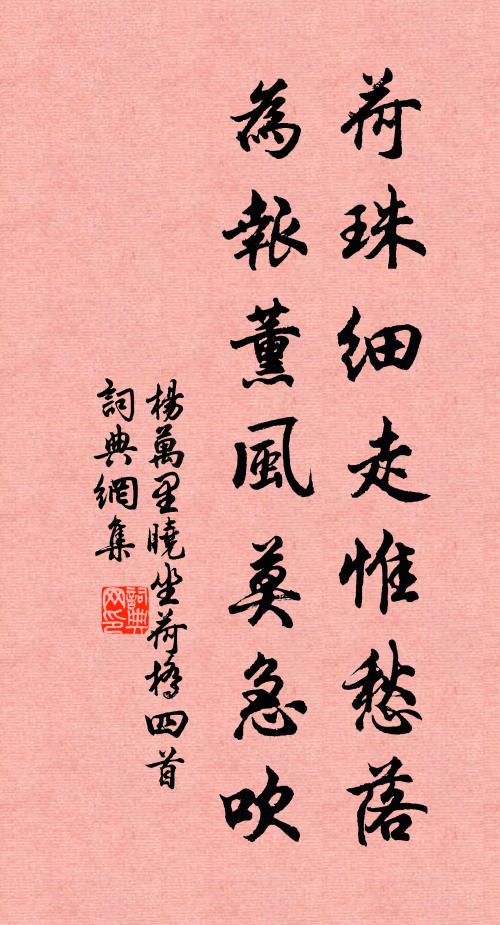 荷珠細走惟愁落
為報薰風莫急吹
楊萬里曉坐荷橋四首
詞典網集
詞典網印